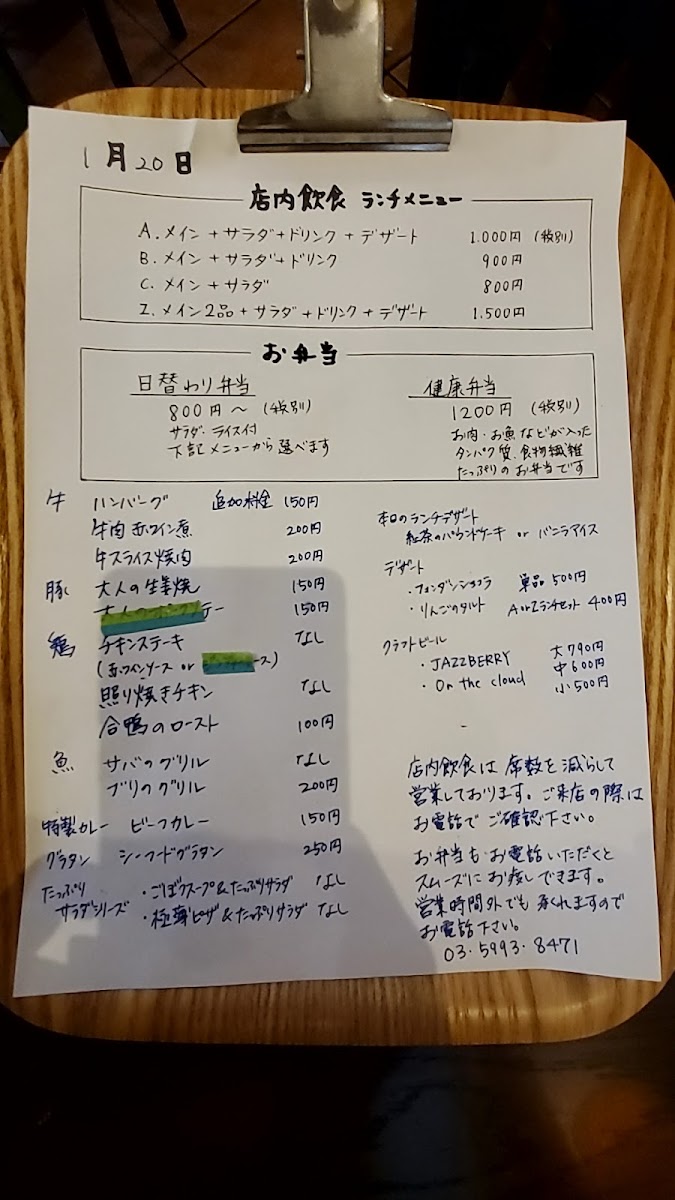 1月20日
店内飲食 ランチメニュー
A.メイン+サラダ+ドリンク+デザート 1.000円 (税別)
B.メイン+サラダ+ドリンク 900円
C.メイン+サラダ 800円
Z.メイン2品+サラダ+ドリンク+デザート 1.500円
お弁当
日替わり弁当
800円〜 (税別)
サラダ・ライス付
下記メニューから選べます
健康弁当
1200円 (税別)
お肉・お魚などが入った
タンパク質、食物繊維
たっぷりのお弁当です
牛 ハンバーグ 追加料金 150円
牛肉赤ワイン煮 200円
牛スライス焼肉 200円
豚 大人の生姜焼 150円
150円
鶏 チキンステーキ なし
(赤ワインソース or ース)
照り焼きチキン なし
合鴨のロースト 100円
魚 サバのグリル なし
ブリのグリル 200円
特製カレー ビーフカレー 150円
グラタン シーフードグラタン 250円
たっぷり
サラダシリーズ
・ごぼうスープ&たっぷりサラダ なし
・極薄ピザ&たっぷりサラダ なし
本日のランチデザート
紅茶のパウンドケーキ or バニラアイス
デザート
・フォンダンショコラ 単品 500円
・りんごのタルト A or Zランチセット 400円
クラフトビール
・JAZZBERRY
・On the cloud
大 790円
中 600円
小 500円
店内飲食は席数を減らして
営業しております。ご来店の際は
お電話でご確認下さい。
お弁当もお電話いただくと
スムーズにお渡しできます。
営業時間外でも承れますので
お電話下さい。
03・5993・8471